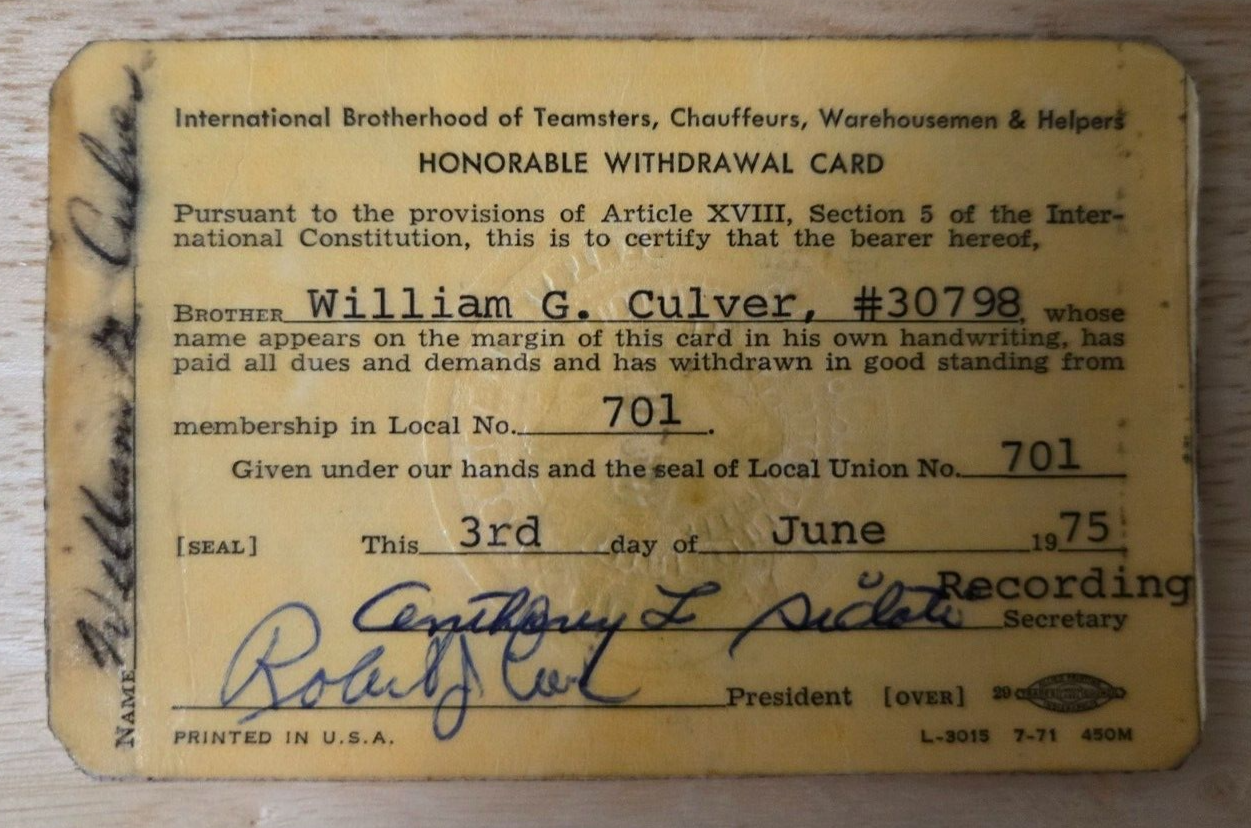 International Brotherhood of Teamsters, Chauffeurs, Warehousemen & Helpers
HONORABLE WITHDRAWAL CARD
Pursuant to the provisions of Article XVIII, Section 5 of the Inter-
national Constitution, this is to certify that the bearer hereof,
BROTHER William G. Culver, #30798, whose
name appears on the margin of this card in his own handwriting, has
paid all dues and demands and has withdrawn in good standing from
membership in Local No. 701.
Given under our hands and the seal of Local Union No. 701
[SEAL] This 3rd day of June 1975
Recording
Anthony L Secretary
Robert J President [OVER] 29
PRINTED IN U.S.A. L-3015 7-71 450M
NAME William G. Culver